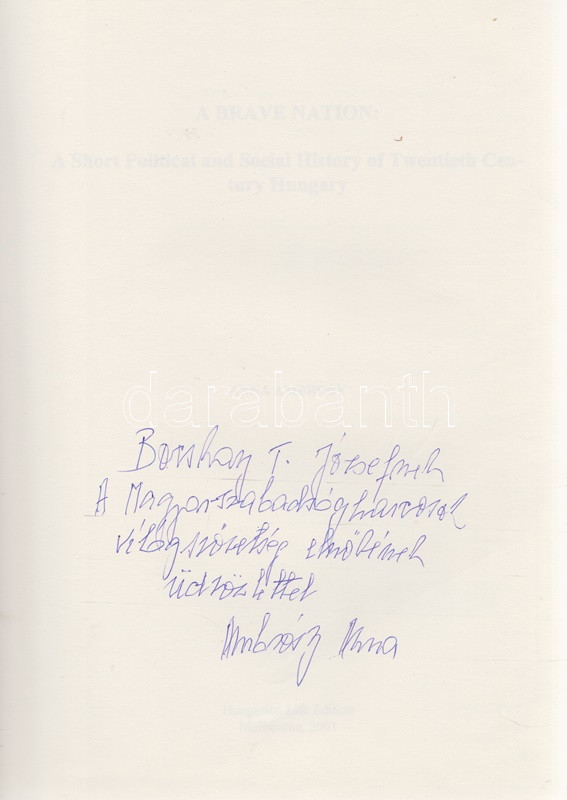 A BRAVE NATION:
A Short Political and Social History of Twentieth Cen-
tury Hungary
darabanth
T. Józsefnek
A Magyarszabadságharcosok
világszövetség elnökének
üdvözlettel
Ambrósy Anna